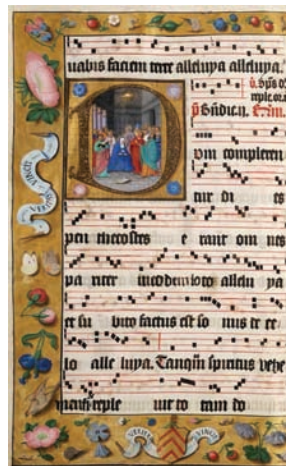 uabis faciem terre alleluya alleluya.
um compleren
tur di es
pen thecostes e rant om nes
pa riter in eodem loco allelu ya
et su bito factus est so nus de ce
lo alle luya. Tanq̄m spiritus vehe
mentis reple uit to tam do